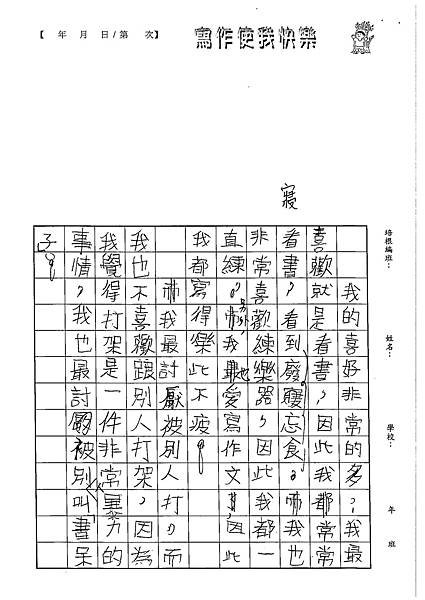 【 年 月 日/第 次】
寫作使我快樂
寢
培根編班：
姓名：
學校：
年 班
我的喜好非常的多，我最
喜歡就是看書，因此我都常常
看書，看到廢寢忘食。而我也
非常喜歡練樂器，因此我都一
直練。另外，我也最愛寫作文，因此
我都寫得樂此不疲。
而我最討厭被別人打，而
我也不喜歡跟別人打架，因為
我覺得打架是一件非常異勞的
事情，我也最討厭被別叫「書呆
子」。